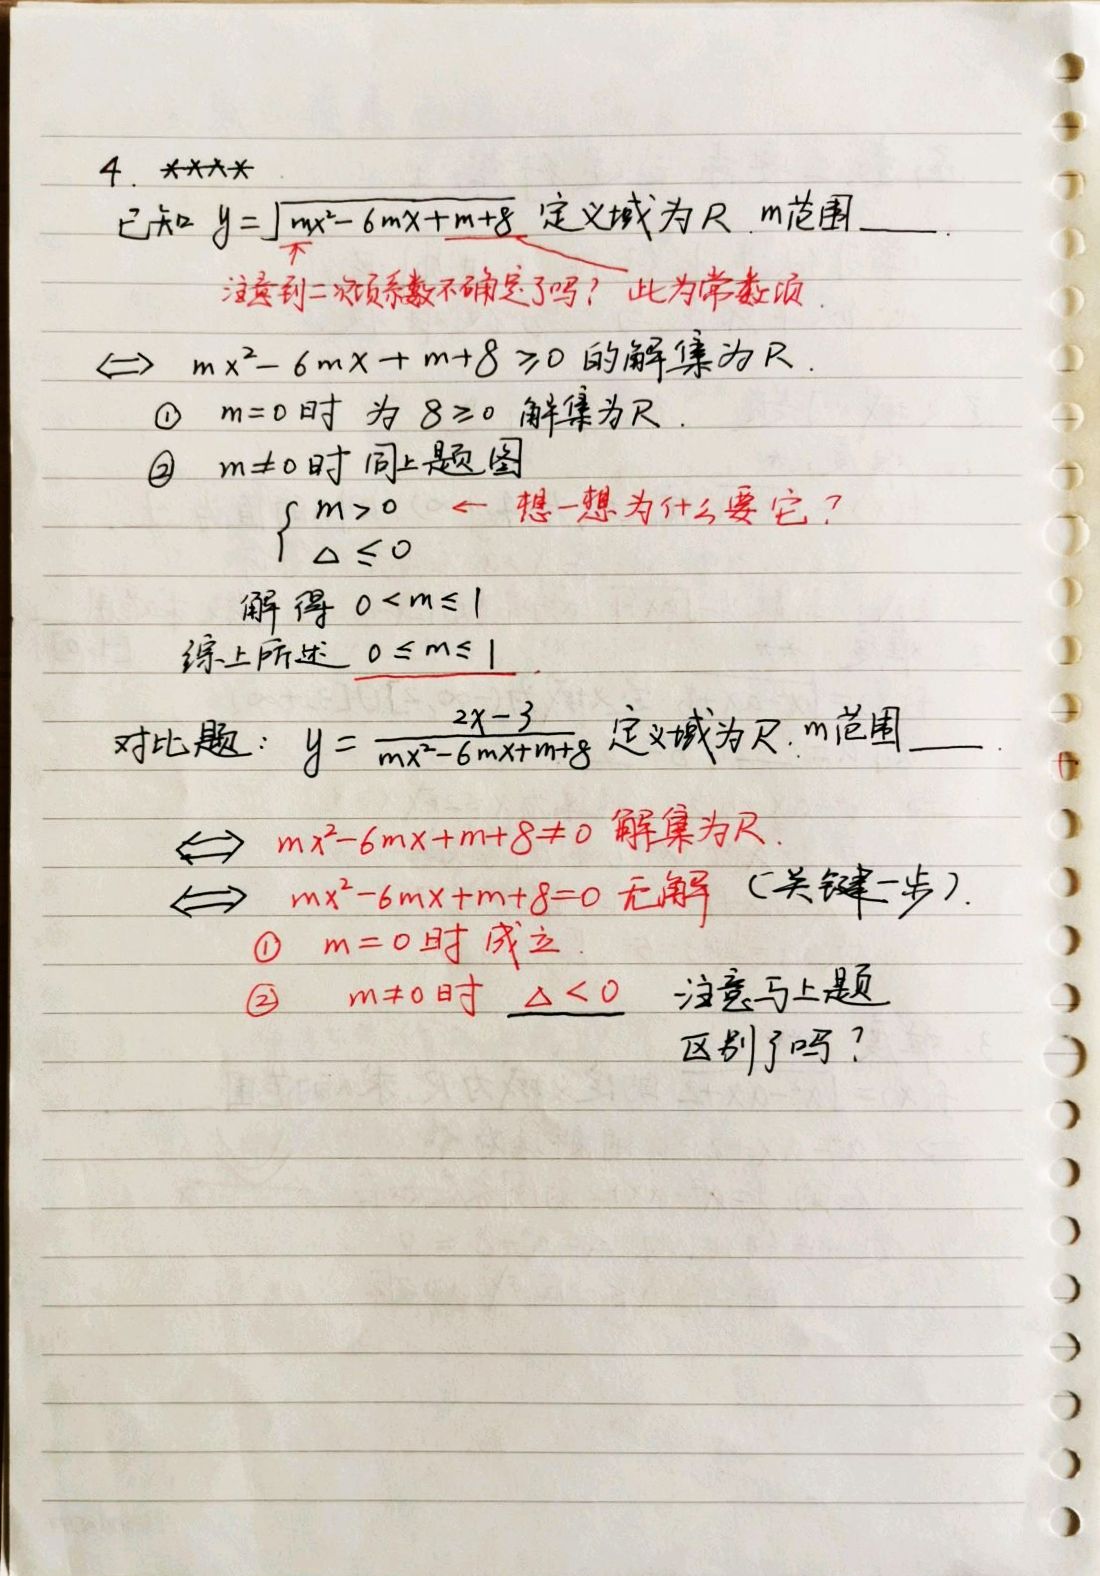 4. ****
已知 y=√(mx²-6mx+m+8) 定义域为R. m范围____.
注意到二次项系数不确定了吗? 此为常数项.
⇔ mx²-6mx+m+8≥0 的解集为R.
① m=0时 为 8≥0 解集为R.
② m≠0时 同上题图
{ m>0 ← 想一想为什么要它?
△≤0
解得 0<m≤1
综上所述 0≤m≤1.
对比题: y=(2x-3)/(mx²-6mx+m+8) 定义域为R. m范围____.
⇔ mx²-6mx+m+8≠0 解集为R.
⇔ mx²-6mx+m+8=0 无解 (关键一步).
① m=0时 成立.
② m≠0时 △<0 注意与上题
区别了吗?